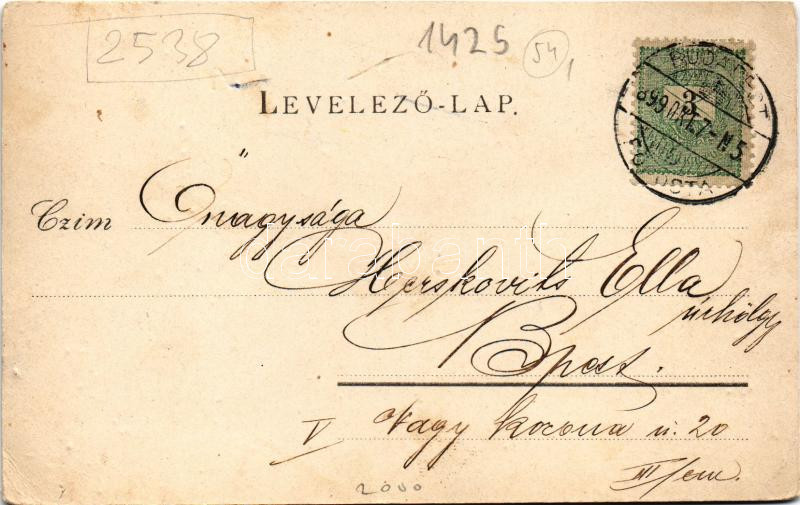 2538
1425
54
LEVELEZŐ-LAP.
BUDAPEST
3
899
FŐPOSTA
Czim Őnagysága
Herskovits Ella
úrhölgy
Bpest.
V Nagy korona u. 20
III/em.
2000